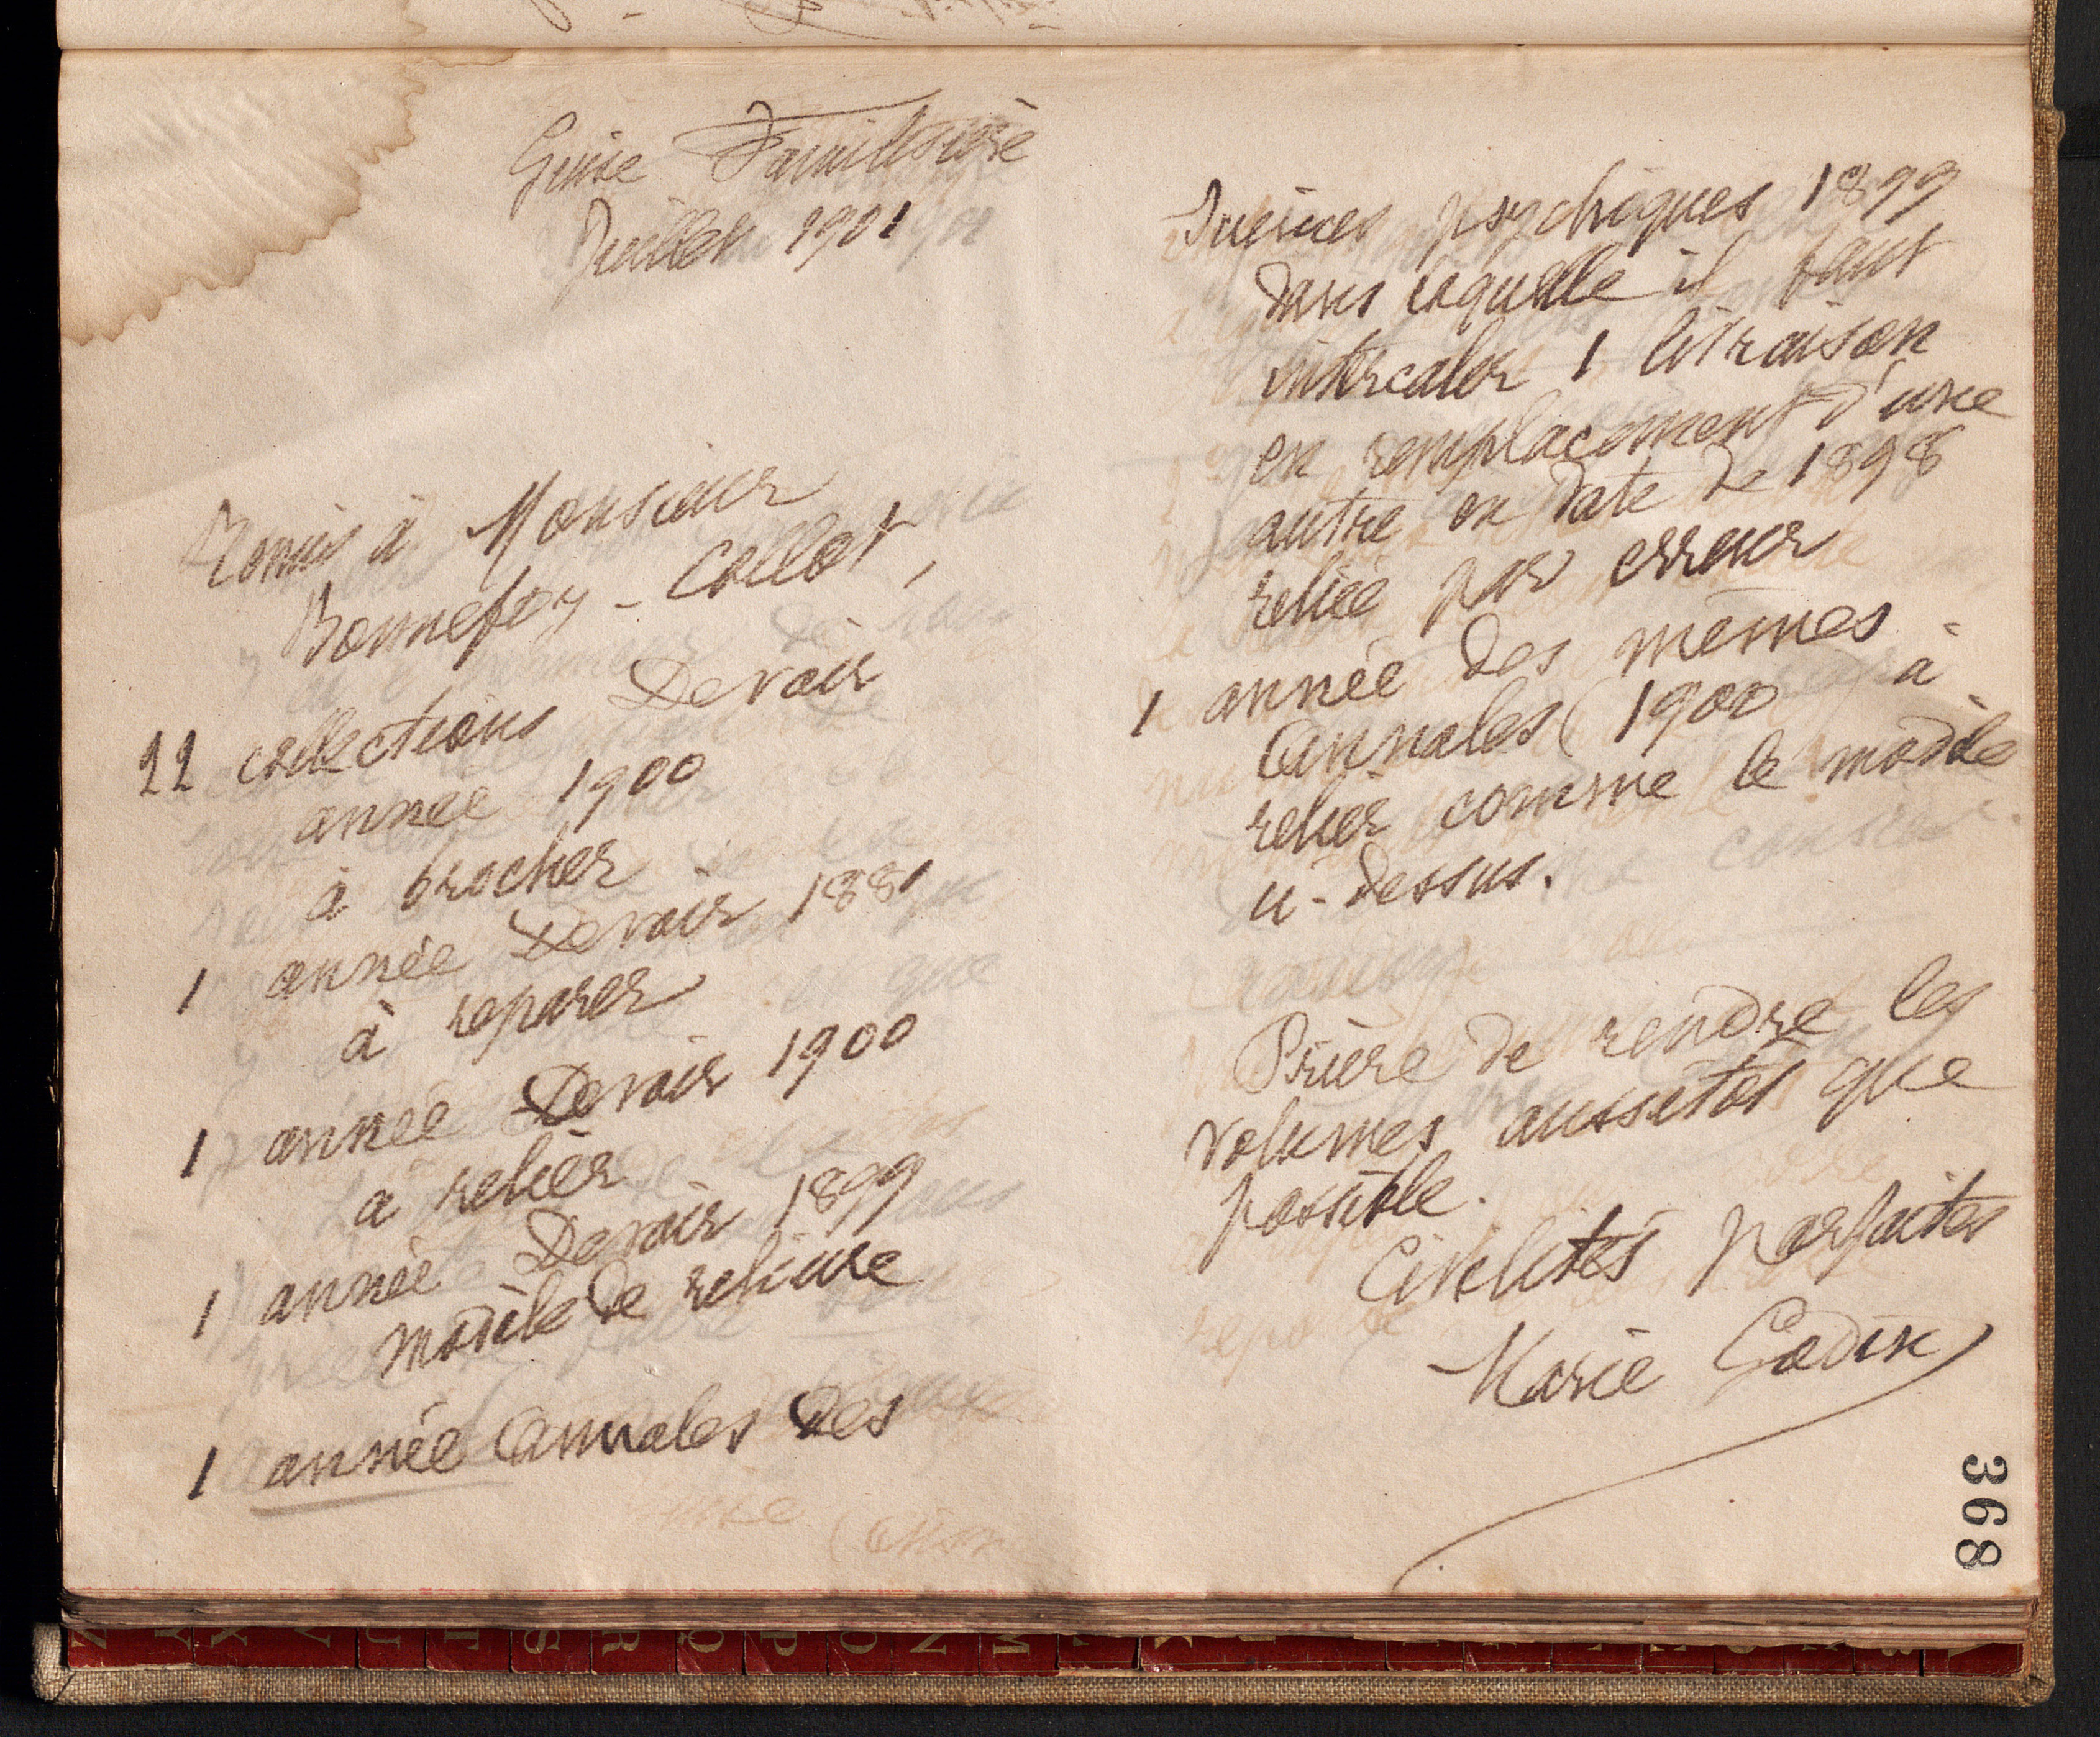 Guise Familistère
Juillet 1901
Remis à Monsieur
Bonnefoy-Collot,
22 collections Devoir
année 1900
à brocher
1 année Devoir 1881
à reparer
1 année Devoir 1900
a relier
1 année Devoir 1899
modèle de reliure
1 année Annales des
Sciences psychiques 1899
dans laquelle il faut
intercaler 1 livraison
en remplacement d'une
autre en date de 1898
reliée par erreur
1 année des mêmes
Annales (1900 à
relier comme le modèle
ci-dessus.
Prière de rendre les
volumes aussitôt que
possible.
Civilités parfaites
Marie Godin
368
Z Y X V U T S R Q P O N M